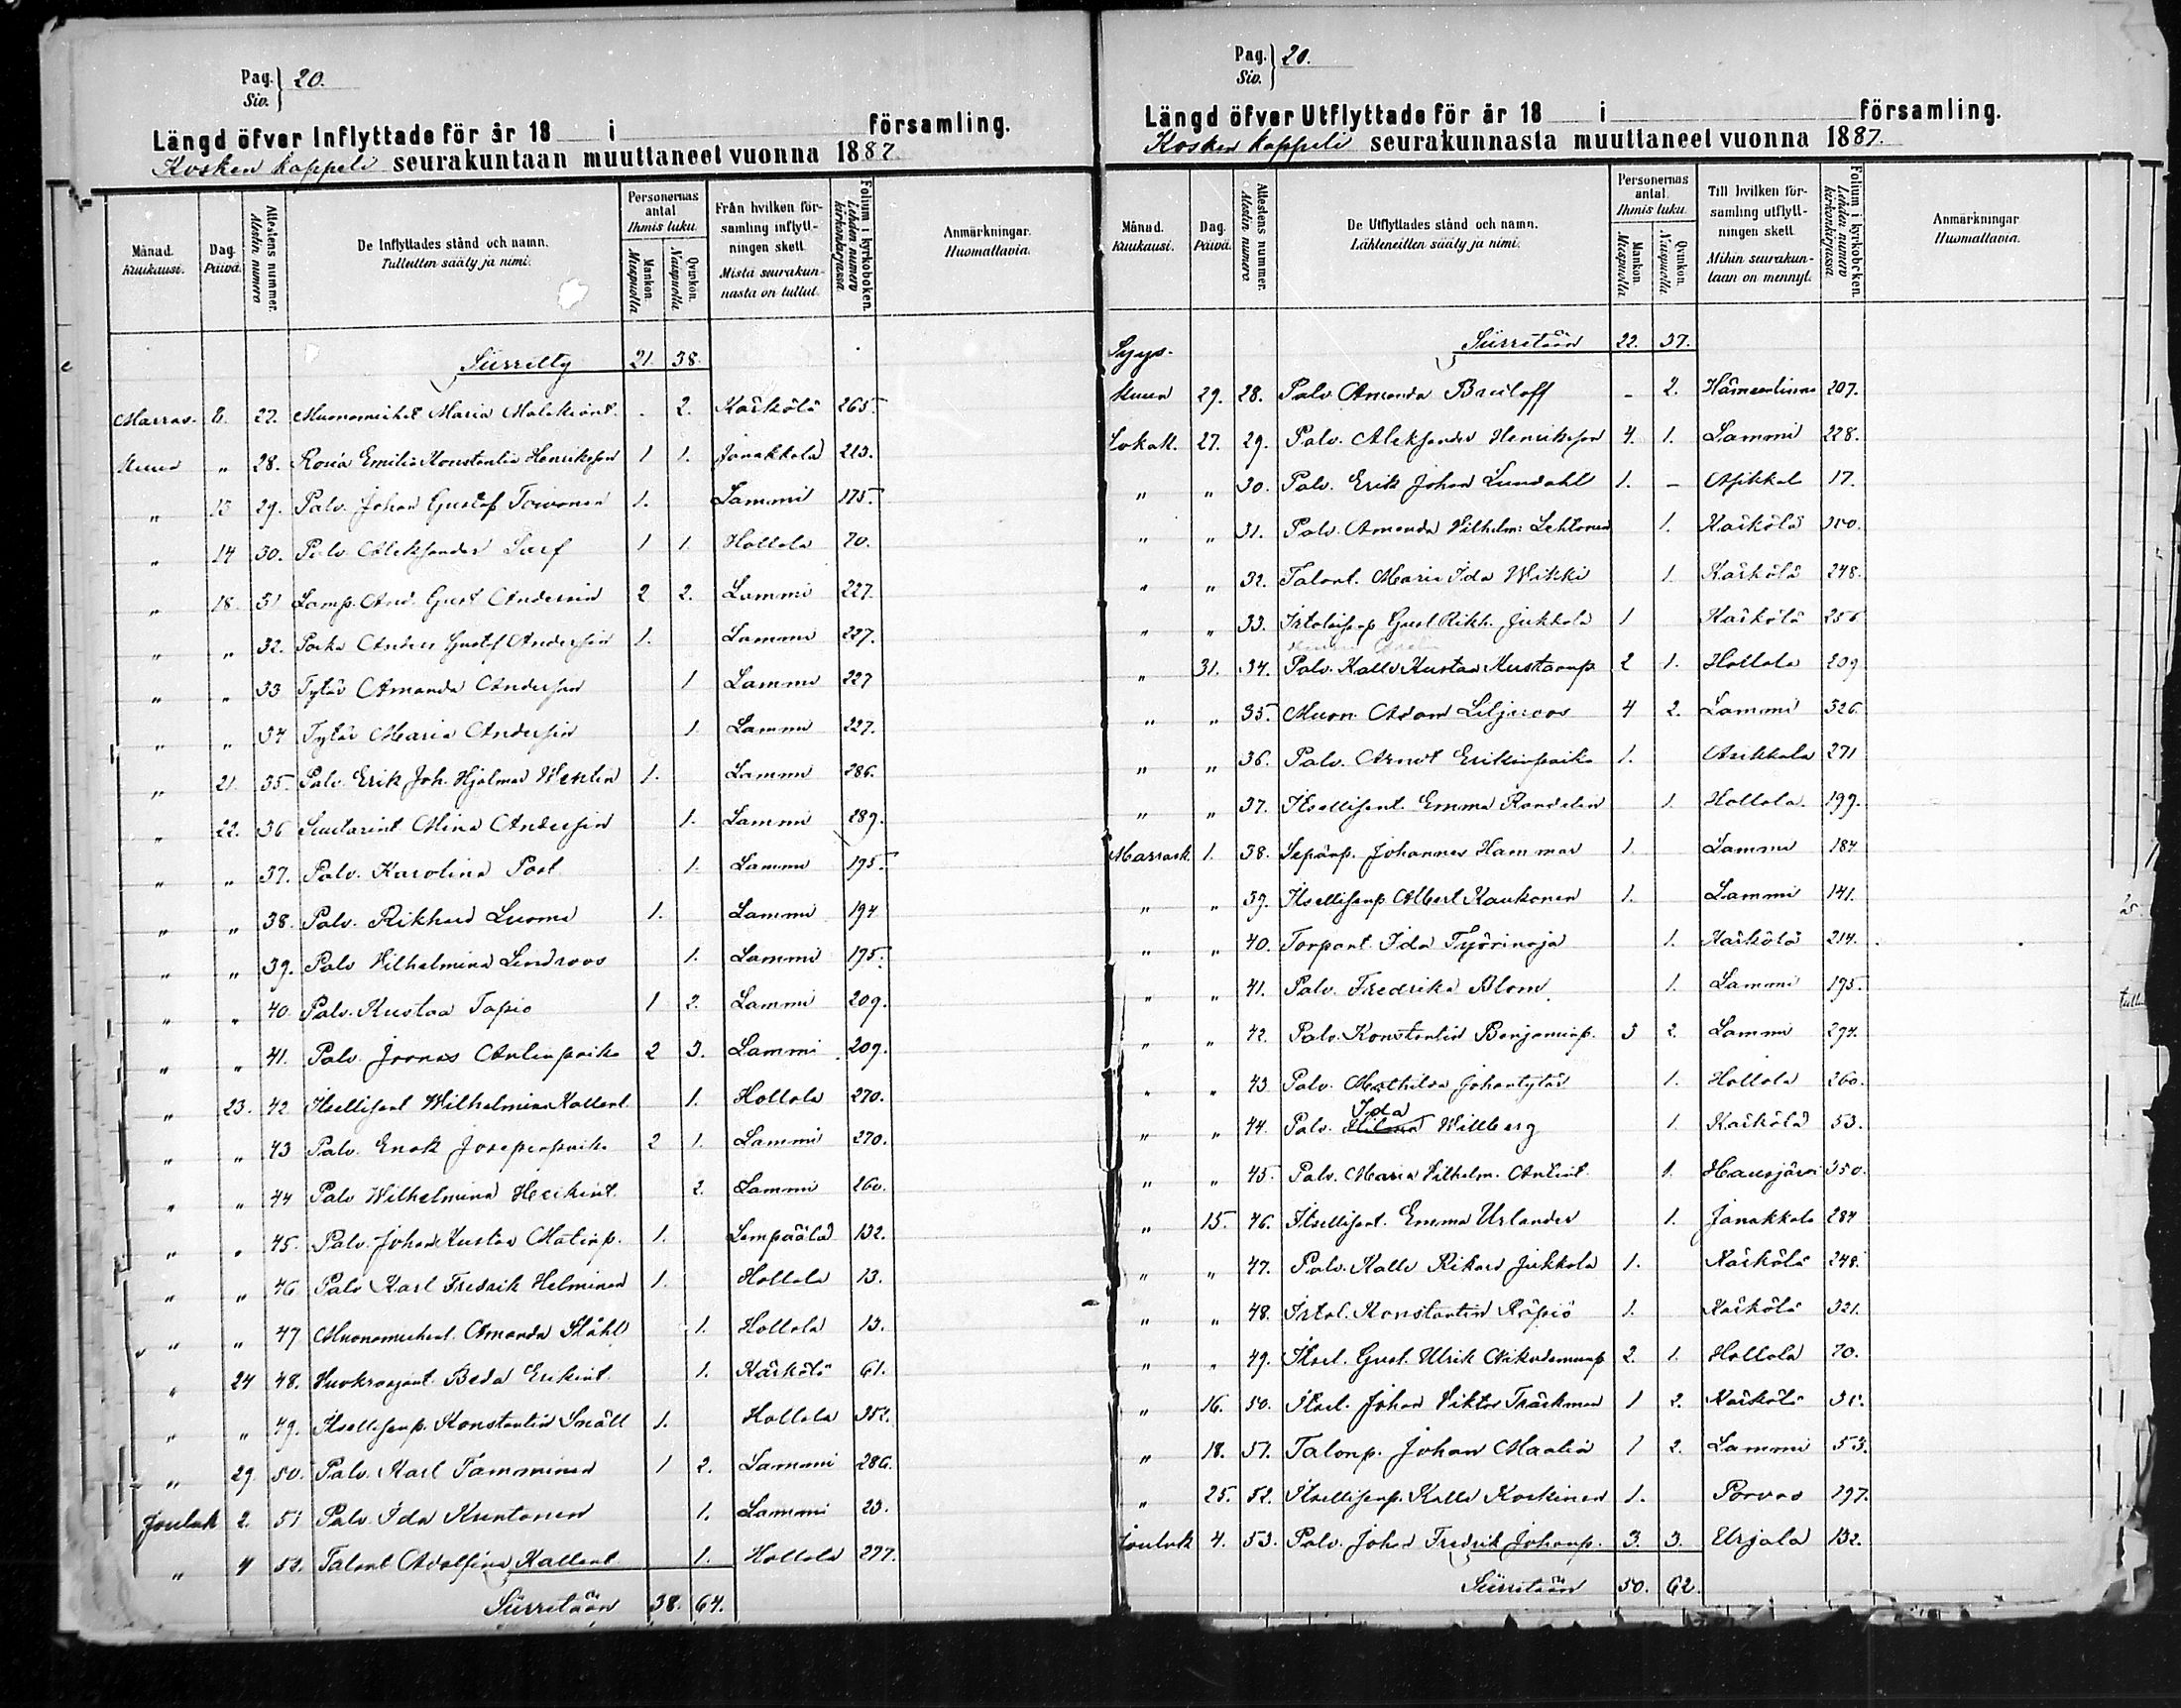 Pag. Siv. 20.
Längd öfver Inflyttade för år 18 i församling.
Kosken kappeli seurakuntaan muuttaneet vuonna 1887
Månad. Kuukausi. Dag. Päivä. Attestens nummer. Atestin numero De Inflyttades stånd och namn. Tulleitten sääty ja nimi. Personernas antal Ihmis luku. Mankön. Miespuolia Qvinkön. Naispuolia Från hvilken församling inflyttningen skett. Mistä seurakunnasta on tullut. Folium i kyrkoboken. Lehden numero kirkonkirjassa. Anmärkningar. Huomattavia.
Siirretty 21. 38.
Marras- 8. 27. Muonamiehet Maria Malakiant. 2. Kärkölä 265.
kuun " 28. Rosia Emilia Konstantia Henriksson 1 1. Janakkala 213.
" 13 29. Palv. Johan Gustaf Toivonen 1. Lammi 175.
" 14 30. Palv. Aleksander Sarf 1 1. Hollola 70.
" 18. 31 Lamp. And. Gust Andersin 2 2. Lammi 227.
" " 32. Poika Anders Gustaf Andersin 1. Lammi 227.
" " 33 Tytär Amanda Andersin 1 Lammi 227
" " 34 Tytär Maria Andersin 1 Lammi 227.
" 21. 35. Palv. Erik Joh. Hjalmar Wenlin 1. Lammi 286.
" 22. 36 Mina Andersin 1. Lammi 289.
" " 37. Palv. Karolina Post 1. Lammi 195.
" " 38. Palv. Rikhard Luoma 1. Lammi 194
" " 39. Palv Wilhelmina Lindroos 1. Lammi 195.
" " 40. Palv. Kustaa Tapio 1 2. Lammi 209.
" " 41. Palv. Joonas Antinpoika 2 3. Lammi 209.
" 23. 42 Itsellisent Wilhelmina Kallent. 1. Hollola 270.
" " 43 Palv. Enok Josepinpoika 2 1. Lammi 270.
" " 44 Palv Wilhelmina Heikint. 2. Lammi 260.
" " 45. Palv. Johan Kustaa Matinp. 1. Lempäälä 132.
" " 46 Palv Karl Fredrik Helminen 1. Hollola 13.
" " 47 Muonamiehent. Amanda Ståhl 1. Hollola 13.
" 24 48. Vuokraajant. Beda Erikint 1. Kärkölä 61.
" " 49. Itsellisenp. Konstantin Snäll 1. Hollola 352.
" 29. 50. Palv. Karl Tamminen 1 2. Lammi 286.
Jouluk 2. 51 Palv. Ida Kuntonen 1. Lammi 23.
" 4 52. Talont Adolfina Kallent. 1. Hollola 277.
Siirretään 38. 64.
Pag. Siv. 20.
Längd öfver Utflyttade för år 18 i församling.
Kosken kappeli seurakunnasta muuttaneet vuonna 1887.
Månad. Kuukausi. Dag. Päivä. Attestens nummer. Atestin numero De Utflyttades stånd och namn. Lähteneitten sääty ja nimi. Personernas antal. Ihmis luku. Mankön. Miespuolia Qvinkön. Naispuolia Till hvilken församling utflyttningen skett. Mihin seurakuntaan on mennyt. Folium i kyrkoboken. Lehden numero kirkonkirjassa. Anmärkningar. Huomattavia.
Syys- Siirretään 22. 37.
kuun 29. 28. Palv Amanda Bruloff - 2. Hämeenlinna 207.
Lokak. 27. 29. Palv. Aleksander Henriksson 4. 1. Lammi 228.
" " 30. Palv. Erik Johan Lundahl 1. - Asikkala 17.
" " 31. Palv. Amanda Wilhelm: Lehtonen 1. Kärkölä 350.
" " 32. Talont. Maria Ida Wikki 1 Kärkölä 248.
" " 33. Irtolaisenp Gust Rikh. Jukkola 1 Kärkölä 256
" 31. 34. Palv. Kalle Kustaa Kustaanp 2 1. Hollola 209
" " 35. Muon. Adam Liljeroos 4 2. Lammi 326.
" " 36. Palv. Arvid Erikinpoika 1. Asikkala 271
" " 37. Itsellisent. Emma Randelin 1. Hollola. 199.
Marrask. 1. 38. Sepänp. Johannes Hammar 1. Lammi 184
" " 39. Itsellisenp Albert Kaukonen 1. Lammi 141.
" " 40. Torpant. Ida Työrinoja 1. Kärkölä 214.
" " 41. Palv. Fredrika Blom 1. Lammi 195.
" " 42. Palv. Konstantin Benjaminp. 3 2. Lammi 294.
" " 43. Palv. Mathilda Johantytär 1. Hollola 260.
" " 44. Palv. Hilma Ida Willberg 1. Kärkölä 53.
" " 45. Palv. Maria Wilhelm. Antint. 1. Hausjärvi 350.
" 15. 46. Itsellisent. Emma Urlander 1. Janakkala 284
" " 47. Palv. Kalle Rikard Jukkola 1. Kärkölä 248.
" " 48. Irtol. Konstantin Röpiö 1. Kärkölä 321.
" " 49. Itsel. Gust. Ulrik Nikodemusp 2. 1. Hollola 70.
" 16. 50. Itsel. Johan Viktor Träskman 1 2. Kärkölä 31.
" 18. 51. Talonp. Johan Maalia 1 2. Lammi 53.
" 25. 52. Itsellisenp. Kalle Koskinen 1. Porvoo 297.
Jouluk 4. 53. Palv. Johan Fredrik Johanp. 3. 3. Urjala 132.
Siirretään 50. 62.